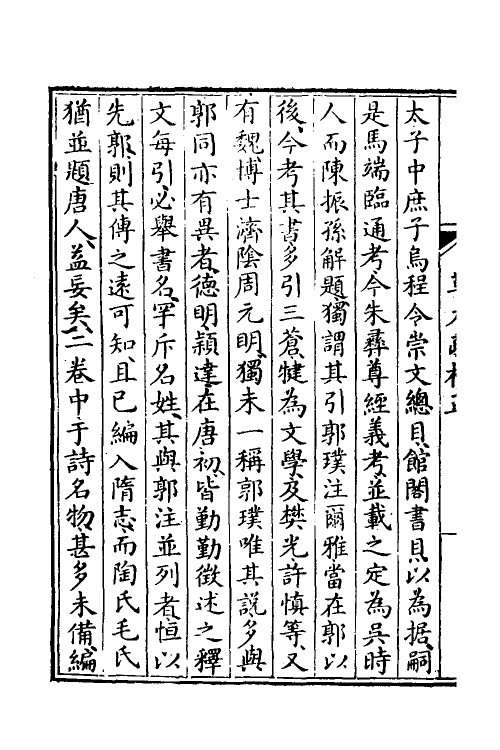 太子中庶子烏程令崇文總目館閣書目以為據嗣
是馬端臨通考今朱彞尊經義考並載之定為吳時
人而陳振孫解題獨謂其引郭璞注爾雅當在郭以
後今考其書多引三蒼犍為文學及樊光許慎等又
有魏博士濟陰周元明獨未一稱郭璞唯其說多與
郭同亦有異者德明穎達在唐初皆勤勤徵述之釋
文每引必舉書名罕斥名姓其與郭注並列者恒以
先郭則其傳之遠可知且已編入隋志而陶氏毛氏
猶並題唐人益妄矣二卷中于詩名物甚多未備編